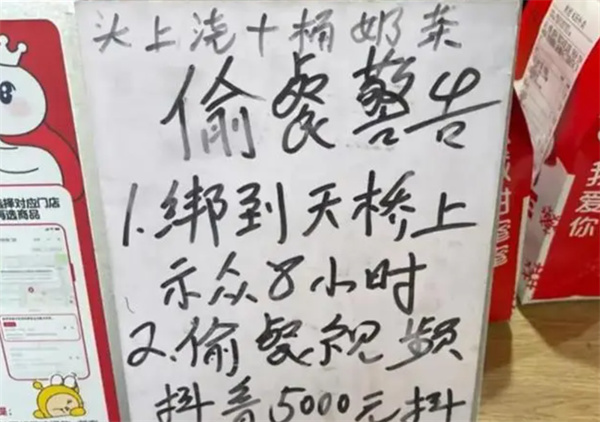 头上浇十桶奶茶
偷餐警告
1.绑到天桥上
示众8小时
2.偷餐视频
抖音5000元抖
选择对应门店
再选商品
我爱你